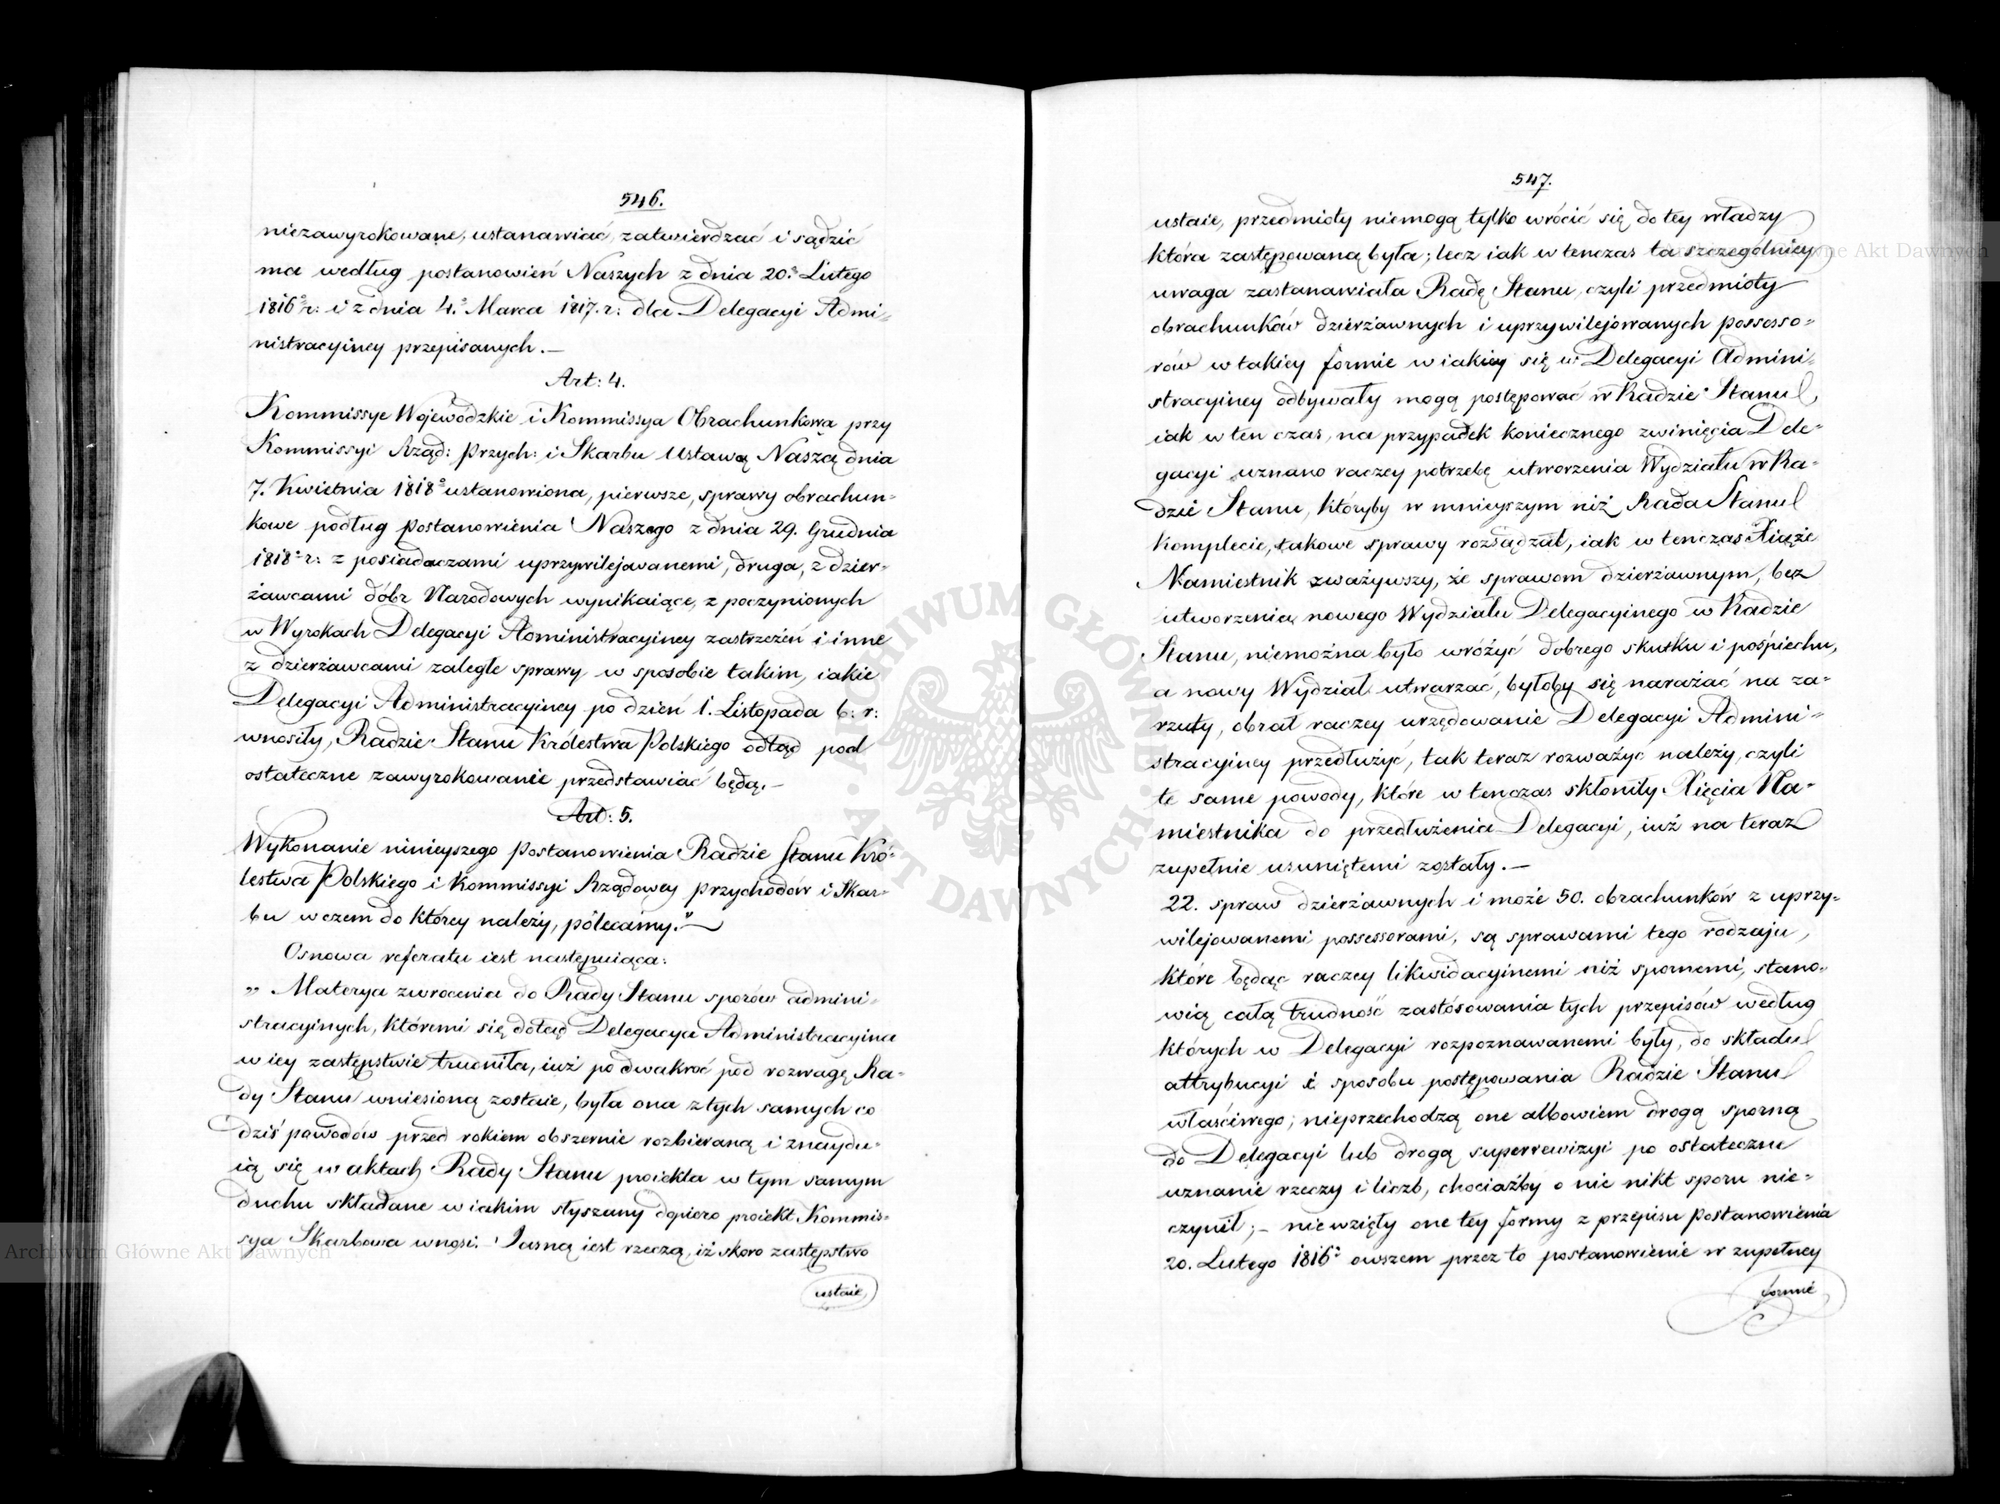 546.
niezawyrokowane, ustanawiać, zatwierdzać i sądzić
ma według postanowień Naszych z dnia 20.° Lutego
1816° r: i z dnia 4.° Marca 1817. r: dla Delegacyi Admi-
nistracyiney przepisanych.—
Art: 4.
Kommissye Wojewódzkie i Kommissya Obrachunkowa przy
Kommissyi Rząd: Przych: i Skarbu Ustawą Naszą dnia
7. Kwietnia 1818° ustanowiona, pierwsze, sprawy obrachun-
kowe podług Postanowienia Naszego z dnia 29. Grudnia
1818° r: z posiadaczami uprzywilejowanemi, druga, z dzier-
żawcami dóbr Narodowych wynikaiące, z poczynionych
w Wyrokach Delegacyi Administracyiney zastrzeżeń i inne
z dzierżawcami zaległe sprawy w sposobie takim, iakie
Delegacyi Administracyiney po dzień 1. Listopada b: r:
wnosiły, Radzie Stanu Królestwa Polskiego odtąd pod
ostateczne zawyrokowanie przedstawiać będą.—
Art: 5.
Wykonanie ninieyszego Postanowienia Radzie Stanu Kró-
lestwa Polskiego i Kommissyi Rządowey Przychodów i Skar-
bu w czem do którey należy, polecamy."—
Osnowa referatu iest następuiąca:
„ Materya zwrocenia do Rady Stanu sporów admini-
stracyinych, któremi się dotąd Delegacya Administracyina
w iey zastępstwie trudniła, iuż po dwakroć pod rozwagę Ra-
dy Stanu wniesioną zostaie, była ona z tych samych co
dziś powodów przed rokiem obszernie rozbieraną i znaydu-
ią się w aktach Rady Stanu proiekta w tym samym
duchu składane w iakim słyszany dopiero proiekt Kommis-
sya Skarbowa wnosi.— Jasną iest rzeczą, iż skoro zastępstwo
ustaie,
547.
ustaie, przedmioty niemogą tylko wrócić się do tey władzy
która zastępowaną była; lecz iak w tenczas ta szczególniey
uwaga zastanawiała Radę Stanu, czyli przedmioty
obrachunków dzierżawnych i uprzywilejowanych possesso-
rów w takiey formie w iakiey się w Delegacyi Admini-
stracyiney odbywały mogą postępować w Radzie Stanu,
iak w ten czas, na przypadek koniecznego zwinięcia Dele-
gacyi uznano raczey potrzebę utworzenia Wydziału w Ra-
dzie Stanu, któryby w mnieyszym niż Rada Stanu
Komplecie, takowe sprawy rozsądzał, iak w tenczas Xiąże
Namiestnik zważywszy, że sprawom dzierżawnym, bez
utworzenia nowego Wydziału Delegacyinego w Radzie
Stanu, niemożna było wróżyć dobrego skutku i pośpiechu,
a nowy Wydział utwarzać, byłoby się narażać na za-
rzuty, obrał raczey urzędowanie Delegacyi Admini-
stracyiney przedłużyć, tak teraz rozważyć należy, czyli
te same powody, które w tenczas skłoniły Xięcia Na-
miestnika do przedłużenia Delegacyi, iuż na teraz
zupełnie usuniętemi zostały.—
22. spraw dzierżawnych i może 50. obrachunków z uprzy-
wilejowanemi possessorami, są sprawami tego rodzaju,
które będąc raczey likwidacyinemi niż spornemi, stano-
wią całą trudność zastósowania tych przepisów według
których w Delegacyi rozpoznawanemi były, do składu
attrybucyi i sposobu postępowania Radzie Stanu
właściwego; nieprzechodzą one albowiem drogą sporną
do Delegacyi lub drogą superrewizyi po ostateczne
uznanie rzeczy i liczb, chociażby o nie nikt sporu nie-
czynił;— niewzięły one tey formy z przepisu Postanowienia
20. Lutego 1816° owszem przez to postanowienie w zupełney
formie
Archiwum Główne Akt Dawnych